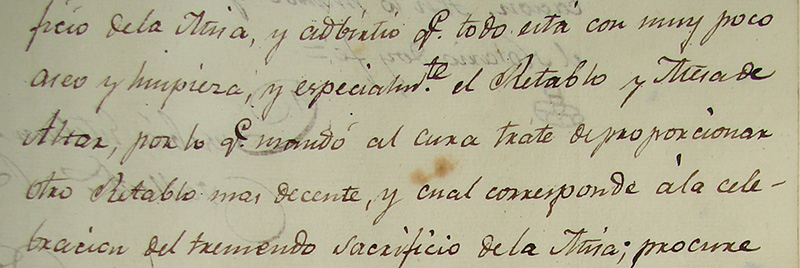 ficio dela Misa, y adbirtio q.e todo está con muy poco
aseo y limpieza, y especialm.te el Retablo y Mesa de
Altar, por lo q.e mandó al cura trate de proporcionar
otro Retablo mas decente, y cual corresponde á la cele-
bracion del tremendo sacrificio de la Misa; procure